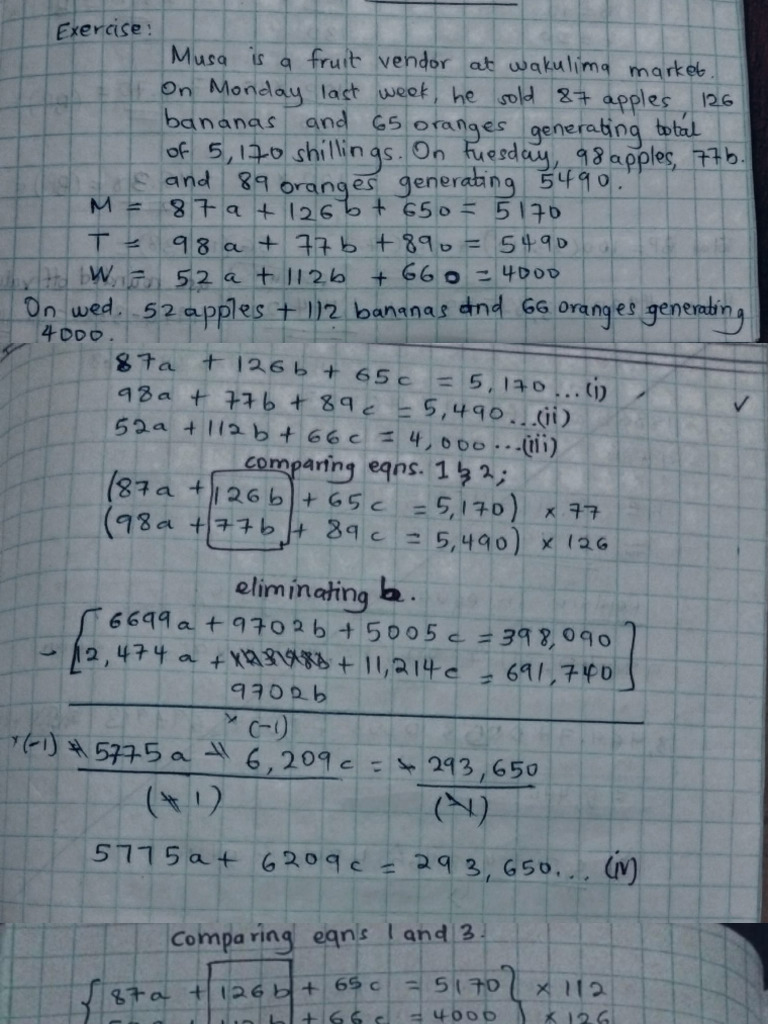 Exercise:
Musa is a fruit vendor at wakulima market.
On Monday last week, he sold 87 apples, 126
bananas and 65 oranges generating total
of 5,170 shillings. On Tuesday, 98 apples, 77b.
and 89 oranges generating 5490.
M = 87a + 126b + 65o = 5170
T = 98a + 77b + 89o = 5490
W = 52a + 112b + 66o = 4000
On wed. 52 apples + 112 bananas and 66 oranges generating
4000.
87a + 126b + 65c = 5,170...(i)
98a + 77b + 89c = 5,490...(ii)
52a + 112b + 66c = 4,000...(iii)
comparing eqns. 1 & 2;
(87a + 126b + 65c = 5,170) × 77
(98a + 77b + 89c = 5,490) × 126
eliminating b.
6699a + 9702b + 5005c = 398,090
- 12,474a + + 11,214c = 691,740
9702b
× (-1)
×(-1) 5775a 6,209c = 293,650
(1) (1)
5775a + 6209c = 293,650... (iv)
comparing eqns 1 and 3.
{87a + 126b + 65c = 5170} × 112
+ 66c = 4000 × 126